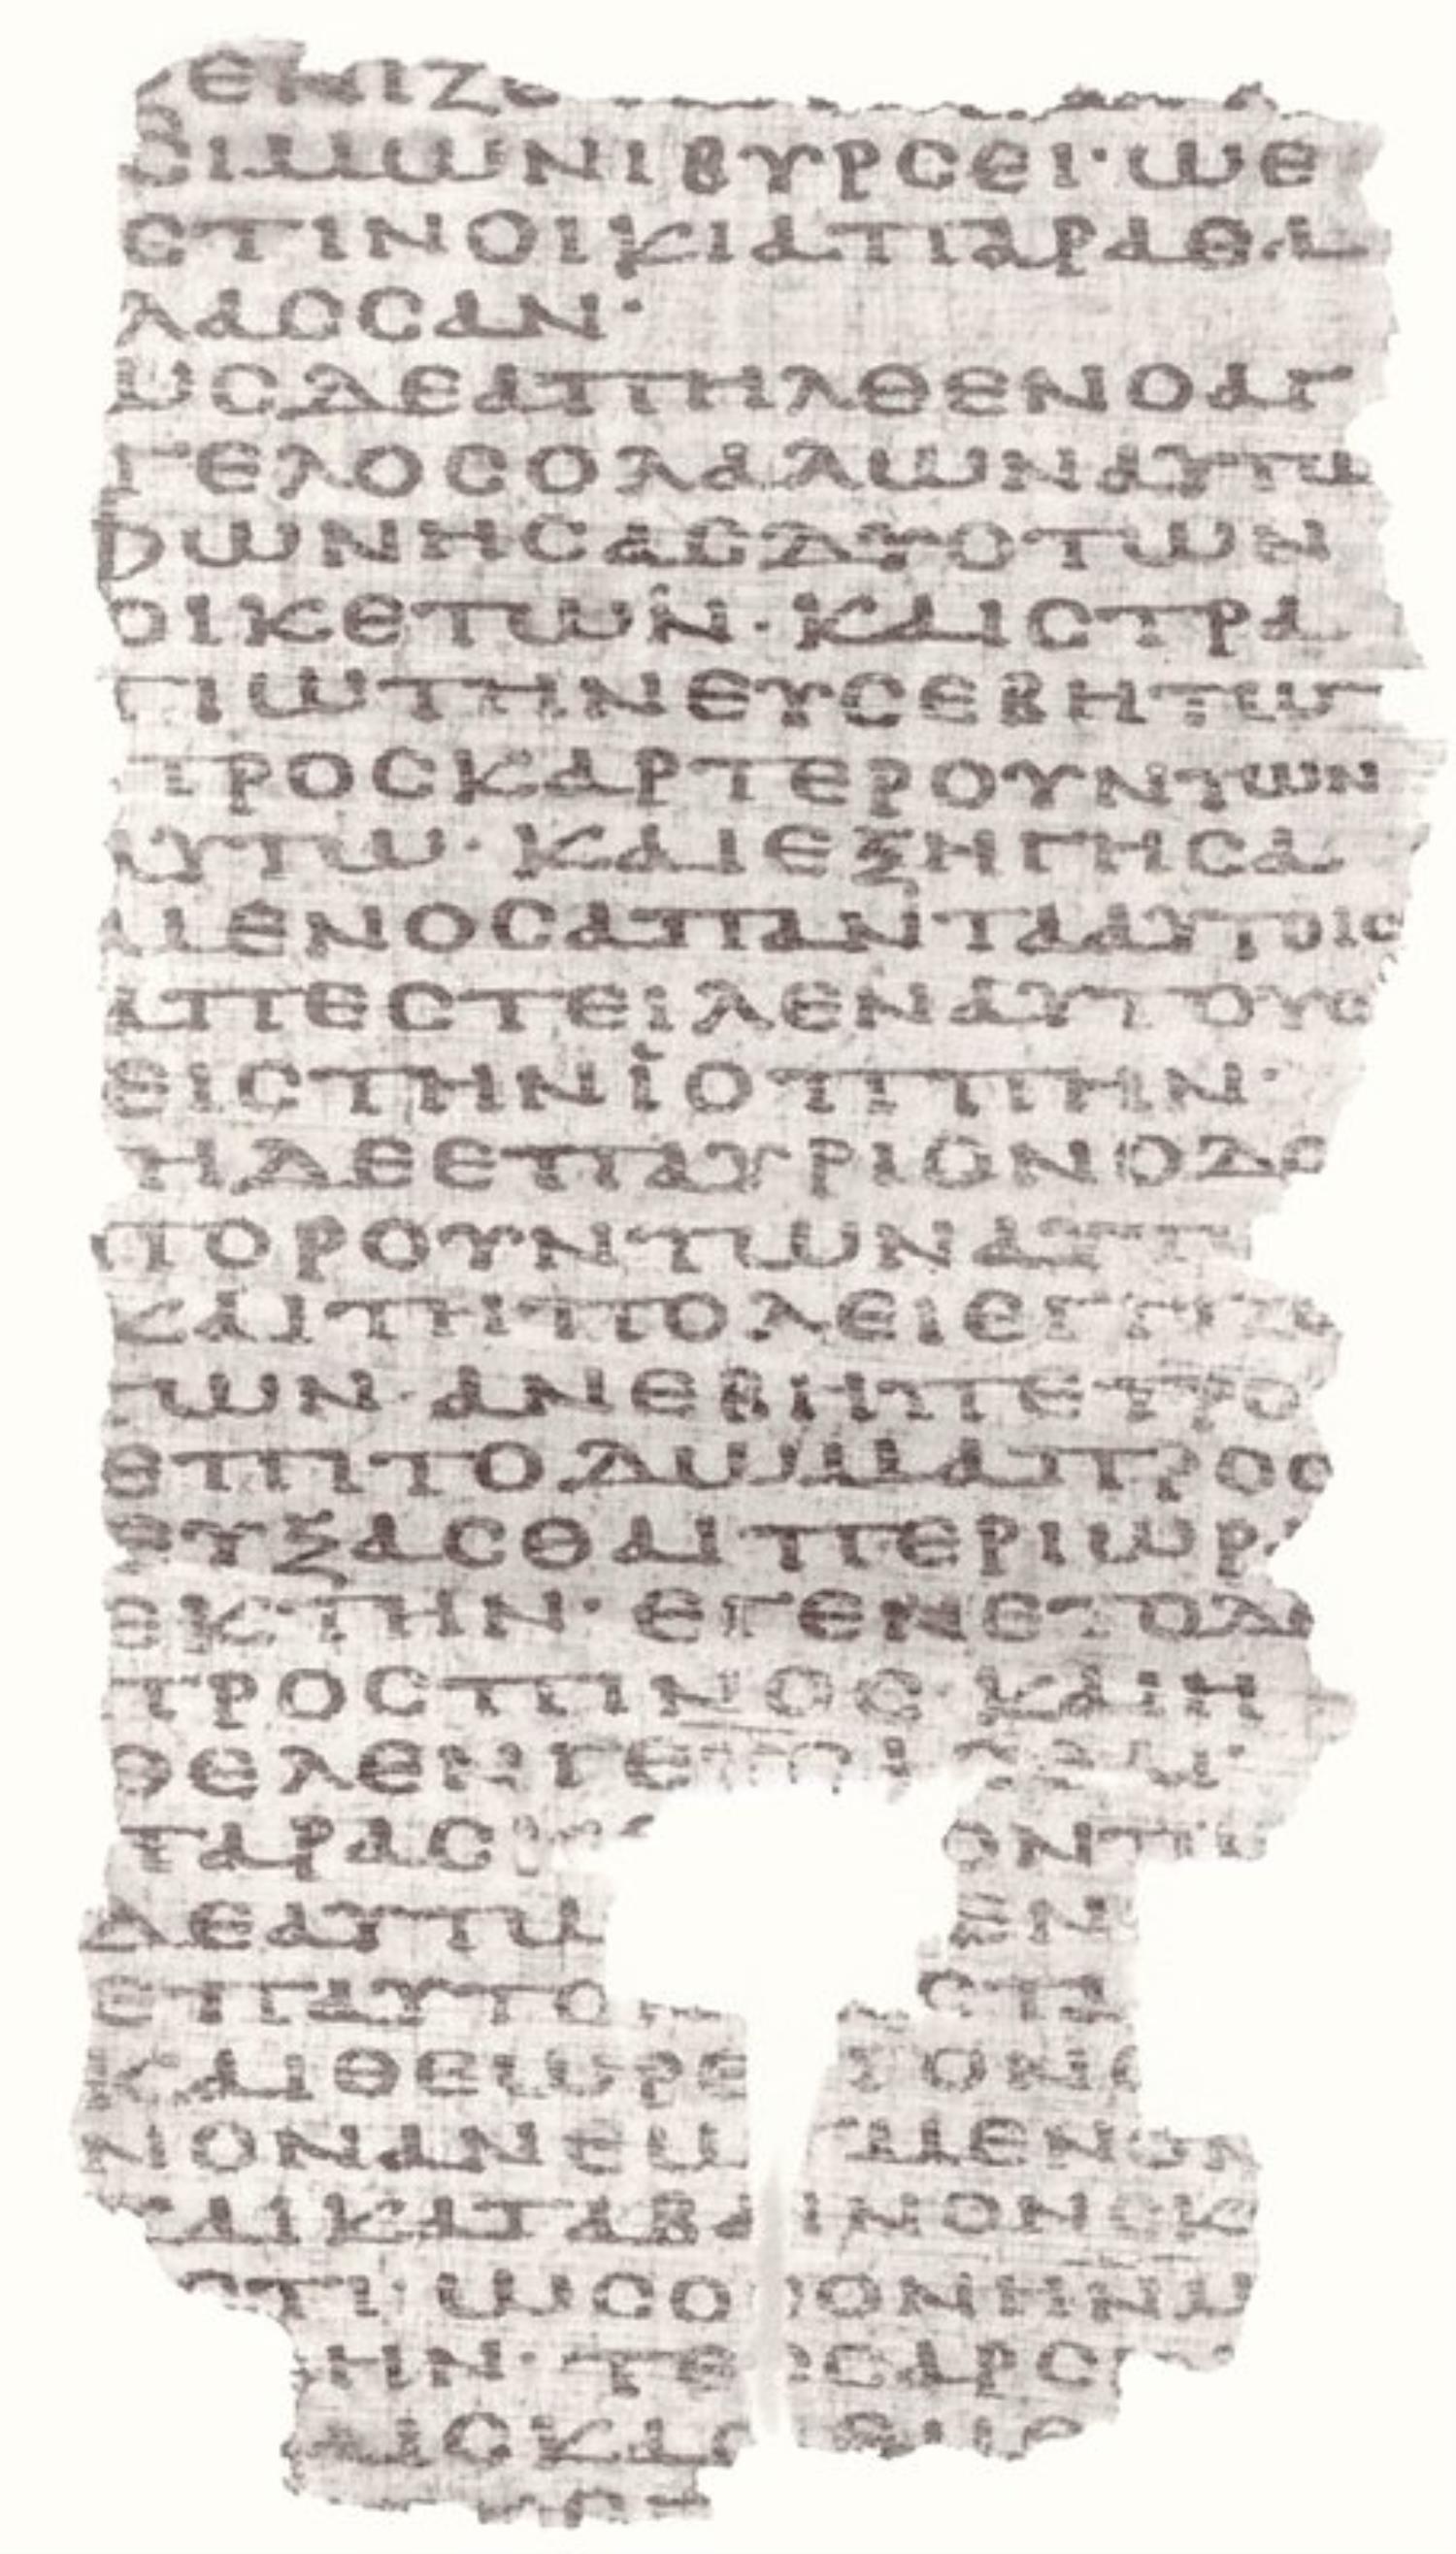 ξενιζε
ϹΙΜΩΝΙΒΥΡϹΕΙ·ΩΕ
ϹΤΙΝΟΙΚΙΑΠΑΡΑΘΑ
ΛΑϹϹΑΝ·
ΩϹΔΕΑΠΗΛΘΕΝΟΑΓ
ΓΕΛΟϹΟΛΑΛΩΝΑΥΤΩ
ΦΩΝΗϹΑϹΔΥΟΤΩΝ
ΟΙΚΕΤΩΝ·ΚΑΙϹΤΡΑ
ΤΙΩΤΗΝΕΥϹΕΒΗΤΩ
ΠΡΟϹΚΑΡΤΕΡΟΥΝΤΩΝ
ΑΥΤΩ·ΚΑΙΕΞΗΓΗϹΑ
ΜΕΝΟϹΑΠΑΝΤΑΑΥΤΟΙϹ
ΑΠΕϹΤΕΙΛΕΝΑΥΤΟΥϹ
ΕΙϹΤΗΝΪΟΠΠΗΝ·
ΤΗΔΕΕΠΑΥΡΙΟΝΟΔΟ
ΠΟΡΟΥΝΤΩΝΑΥΤΩ
ΚΑΙΤΗΠΟΛΕΙΕΓΓΙΖΟ
ΤΩΝ·ΑΝΕΒΗΠΕΤΡΟ
ΕΠΙΤΟΔΩΜΑΠΡΟϹ
ΕΥΞΑϹΘΑΙΠΕΡΙΩΡΑ
ΕΚΤΗΝ·ΕΓΕΝΕΤΟΔΕ
ΠΡΟϹΠΙΝΟϹ·ΚΑΙΗ
ΘΕΛΕΝΓΕΥϹ
ΠΑΡΑϹ ΟΝΤΩ
ΔΕΑΥΤΩ ΕΝ
ΕΠΑΥΤΟ ϹΤΑ
ΚΑΙΘΕΩΡΕ ΤΟΝΟ
ΝΟΝΑΝΕΩ ΓΜΕΝΟΝ
ΚΑΙΚΑΤΑΒΑΙΝΟΝϹΚ
ΟΤΙ·ΩϹΟΘΟΝΗΝΜ
ΛΗΝ·ΤΕϹϹΑΡϹ
ΑΙϹΚΑ